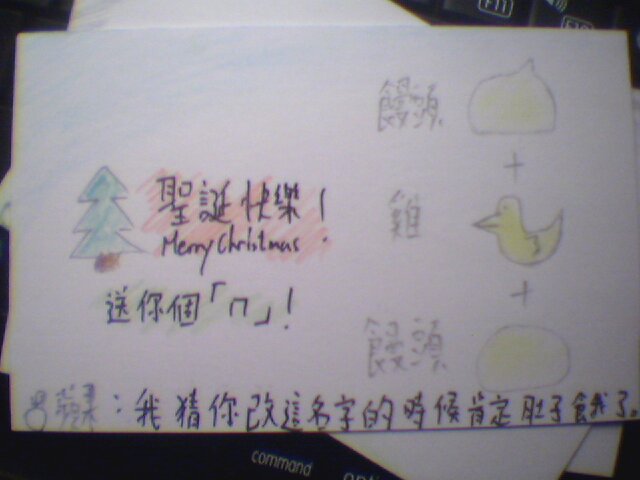 聖誕快樂!
Merry Christmas.
送你個「ㄇ」!
饅頭
+
雞
+
饅頭
蘋果:我猜你改這名字的時候肯定肚子餓了。
F11
command